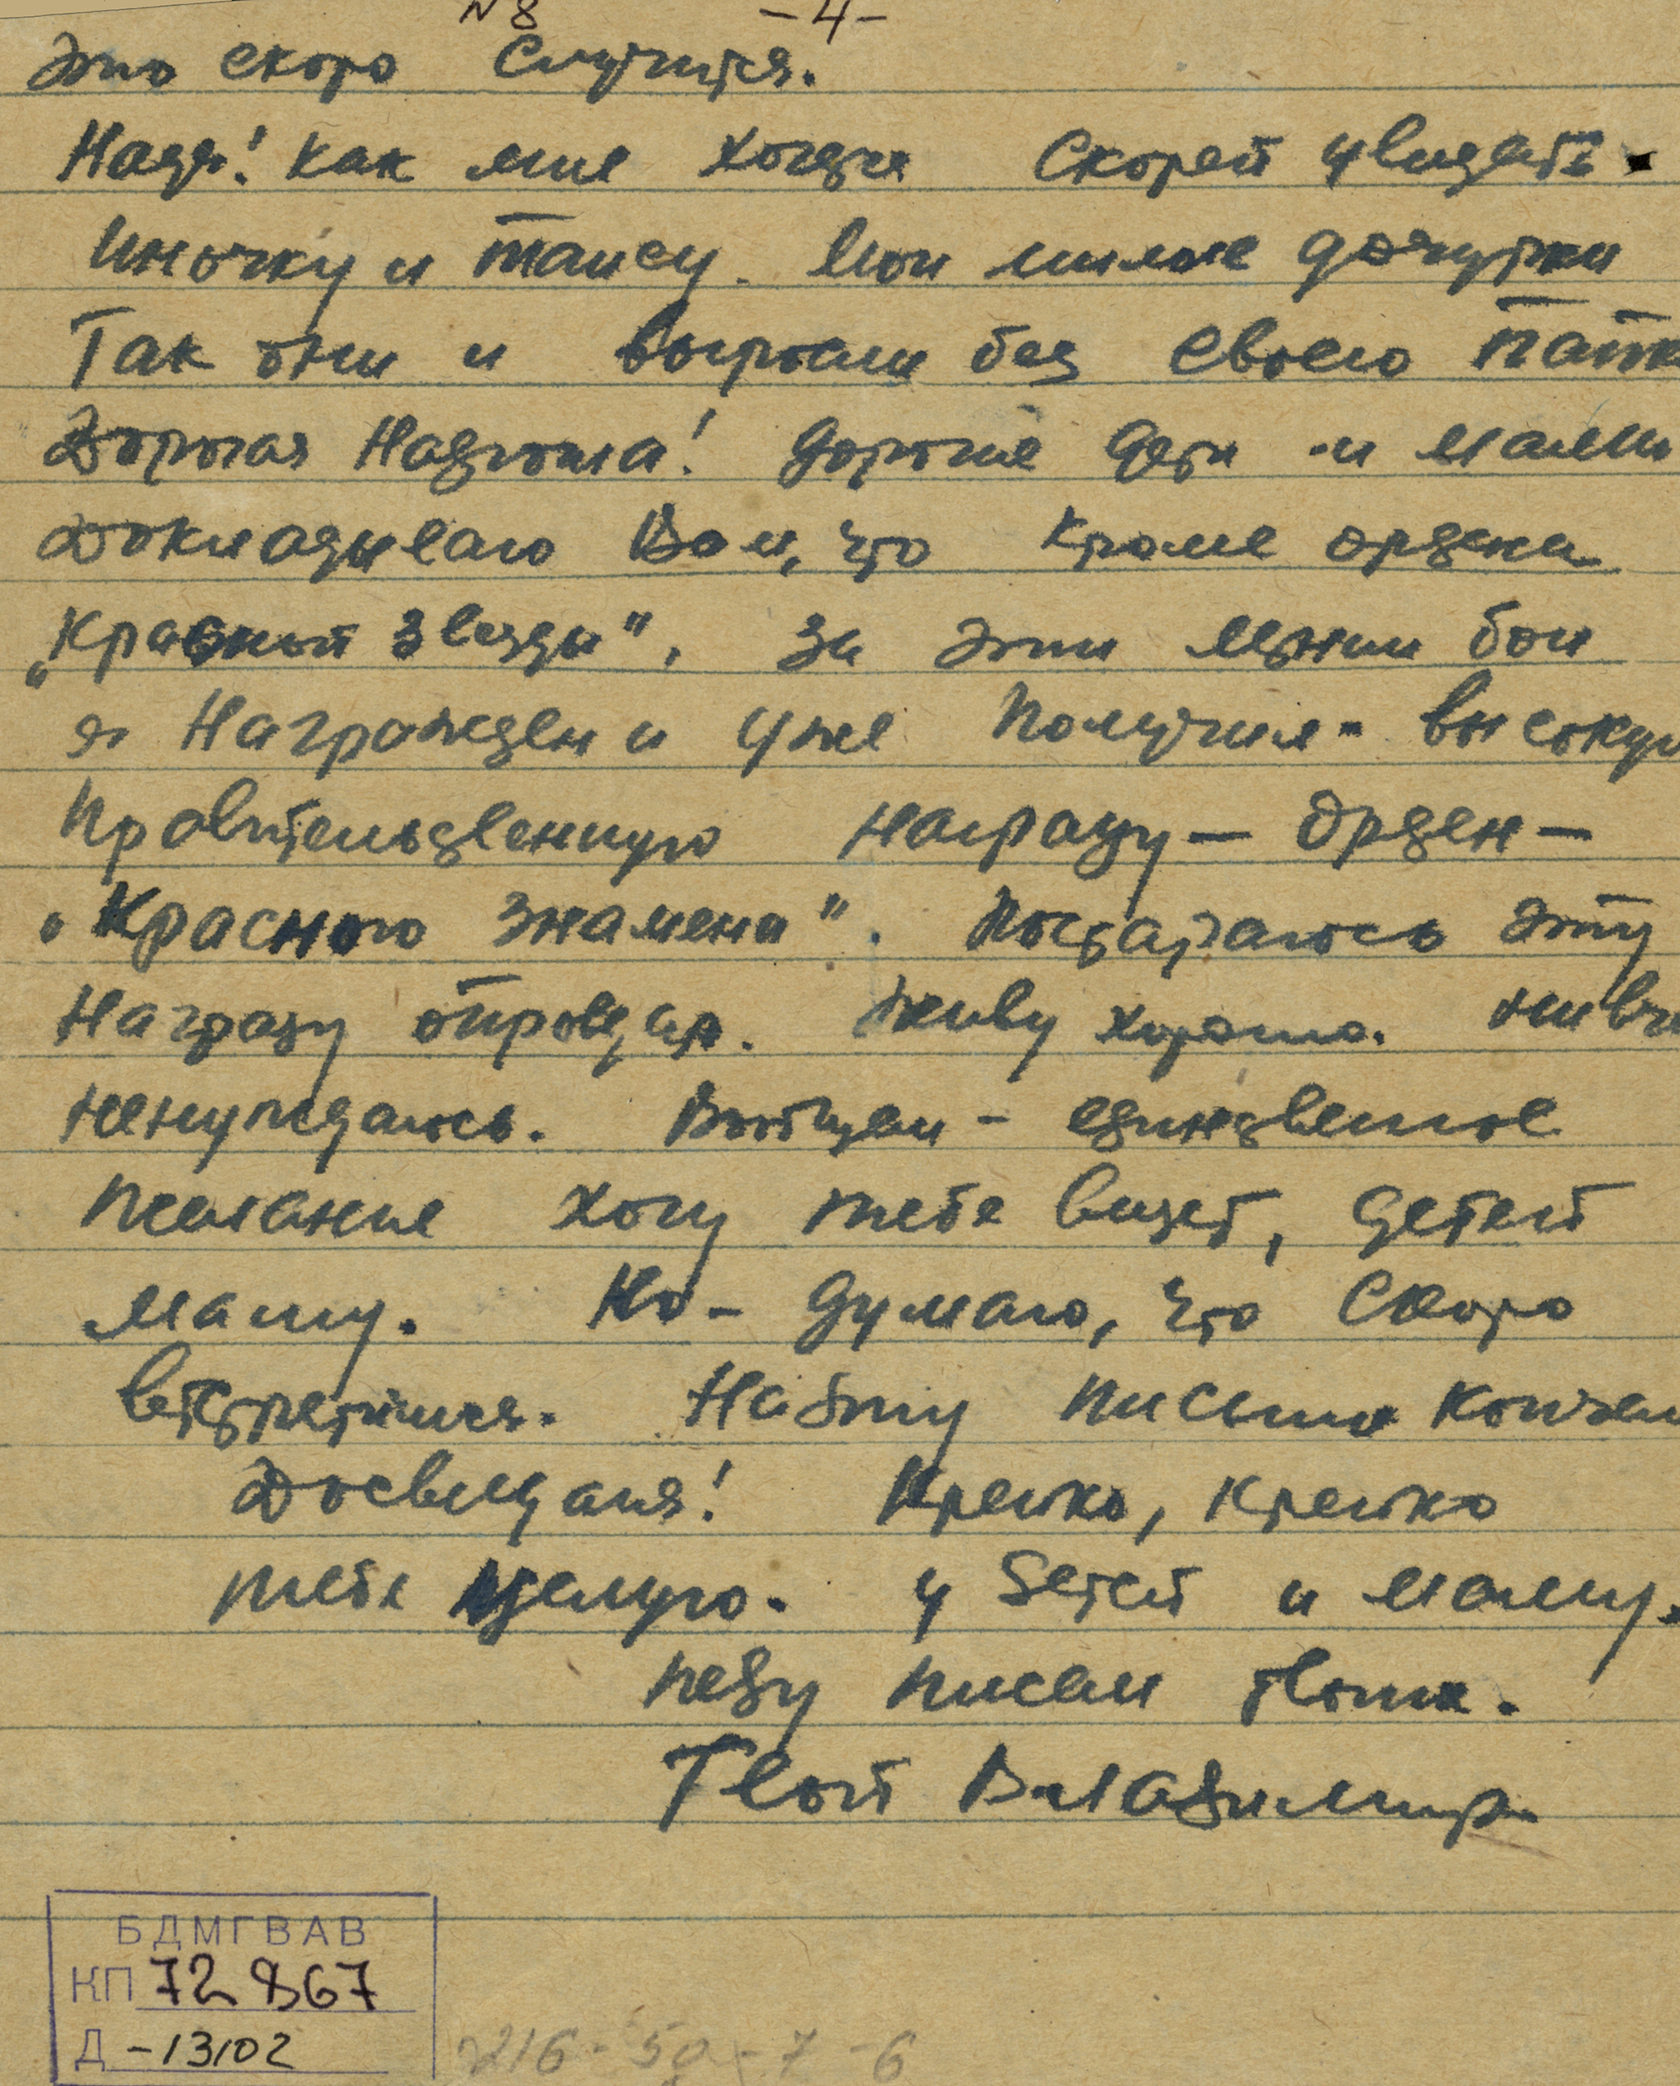 N 8 -4-
Это скоро Случится.
Надя! Как мне хочется Скорей увидеть
Иночку и Таису. Мои милые дочутки
Так они и выросли без своего папк
Дорогая Надюша! дорогие дети и мами
Докладываю Вам, что кроме ордена
„Красной Звезды", за эти летнии бои
я Награжден и уже Получил - высокую
Правительственную награду — Орден —
„Красного Знамени". Постараюсь эту
Награду оправдар. Живу хорошо. нивче
ненуждаюсь. Вообщем - единственое
желание хочу тебя видет, детей
маму. Но - думаю, что Скоро
встретимся. На эту письмо кончаю
Досвиданя! Крепко, крепко
тебя целую. и детей и маму.
жду писем твоих.
Твой Владимир
БДМГВАВ
КП 72867
Д -13102
216-50-7-6